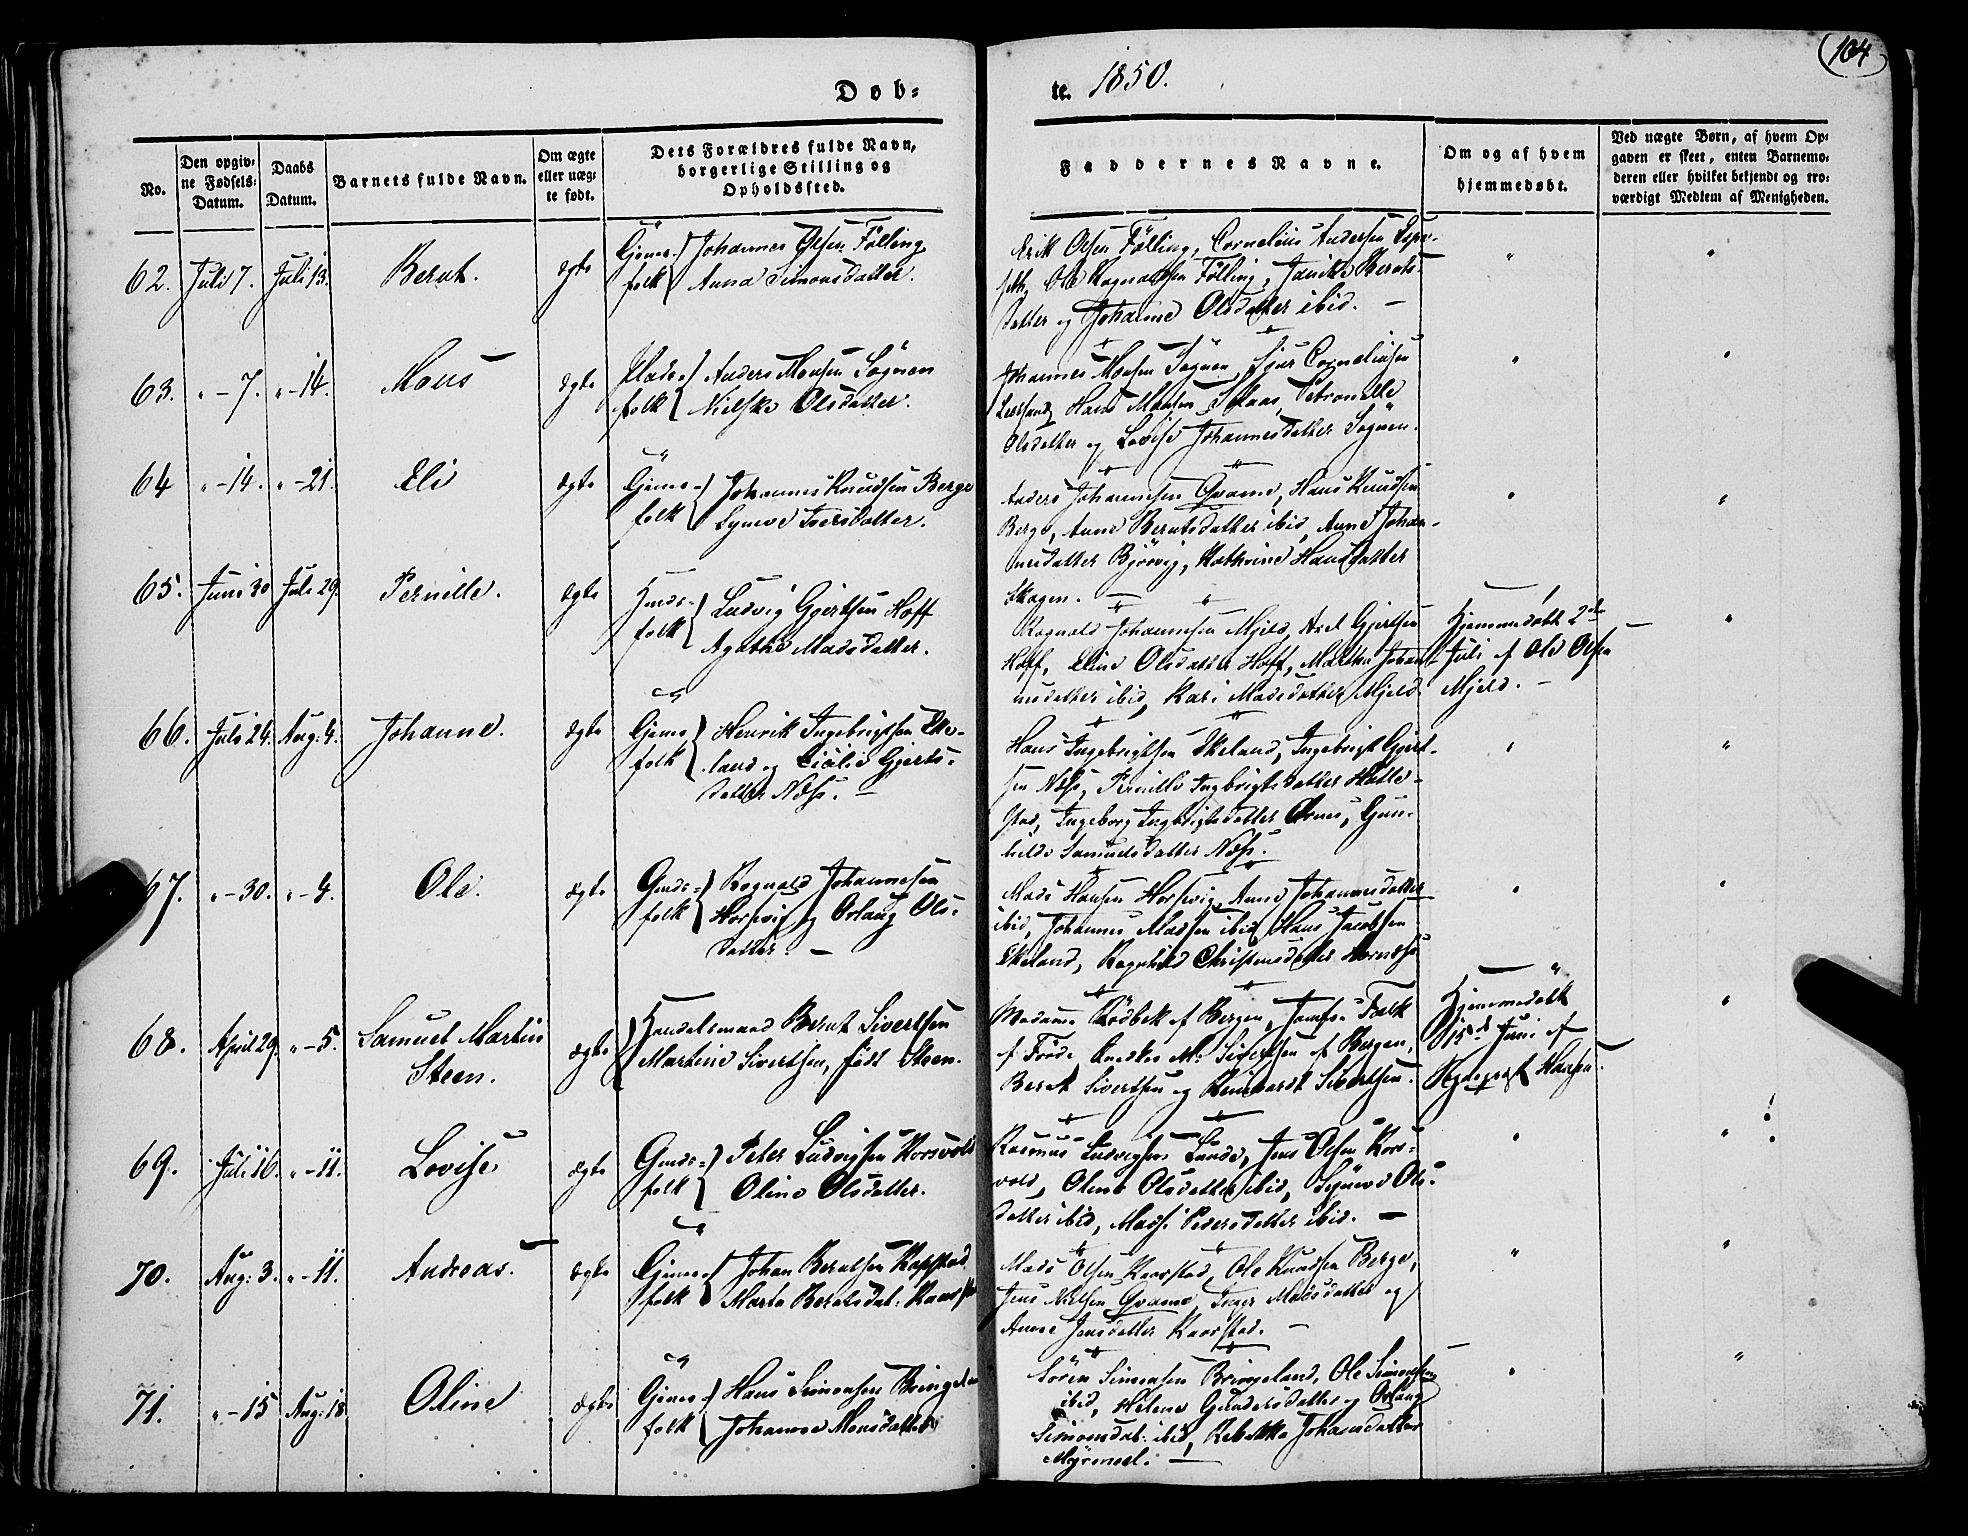 104
Døb-
te. 1850.
No.
Den opgiv-
ne Fødsels-
Datum.
Daabs
Datum.
Barnets fulde Navn.
Om ægte
eller uæg-
te født.
Dets Forældres fulde Navn,
borgerlige Stilling og
Opholdssted.
Faddernes Navne.
Om og af hvem
hjemmedøbt.
Ved uægte Børn, af hvem Op-
gaven er skeet, enten Barnemo-
deren eller hvilket bekjendt og tro-
værdigt Medlem af Menigheden.
62. Juli 7. Juli 13. Bernt. ægte
Johannes Olsen Fölling
folk Anna Simonsdatter.
Erik Olsen Fölling, Cornelius Andersen Espe-
seth, Ole Ragnaldsen Fölling, Janiké Bernts-
datter og Johanne Olsdatter ibid. —
"
"
63. " – 7. " – 14. Mons ægte
Plads- Anders Monsen Sögnen
folk Nielske Olsdatter.
Johannes Monsen Sögnen, Sjur Corneliusen
Hans Monsen Petronelle
Olsdatter og Lovise Johannesdatter Sögnen.
"
"
64 " – 14. " – 21. Eli ægte
Johannes Knudsen Berge
folk Syneve Iversdatter.
Anders Johannesen Qvame, Hans Knudsen
Berge, Anne Berntsdatter ibid, Anne Johan-
nesdatter Björvig, Kathrine Hansdatter
Skogen. —
"
"
65. Juni 30 Juli 29. Pernille. ægte
Ludvig Gjertsen Hoff
folk Agathe Madsdatter.
Ragnald Johannesen Mjeld, Axel Gjertsen
Hoff, Eline Olsdatter Hoff, Martha Johan-
nesdatter ibid, Kari Madsdatter Mjeld.
Hjemmedöbt 2den
Juli af Ole Olsen
Mjeld. —
"
66. Juli 24. Aug: 4. Johanne. ægte
Henrik Ingebrigtsen Eke-
folk land og Cicilie Gjerts-
datter Næss. —
Hans Ingebrigtsen Ekeland, Ingebrigt Gjert-
sen Næss, Pernille Ingbrigtsdatter Hatle-
stad, Ingeborg Ingbrigtsdatter Aarnes, Gun-
hilde Samuelsdatter Næss.
"
"
67. " – 30. " – 4. Ole. ægte
Ragnald Johannesen
folk Horsevig og Orlaug Ols-
datter. —
Mads Hansen Horsevig, Anne Johannesdatter
ibid, Johannes Madsen ibid, Hans Jacobsen
Ekeland, Ragnhild Christensdatter Hornæss.
"
"
68. April 29. " – 5. Samuel Martin
Steen.
ægte
Handelsmand Bernt Sivertsen
Martine Sivertsen, födt Steen.
Madame Rödbek af Bergen, Jomfru Falk
af Förde, M: Sivertsen af Bergen,
Bernt Sivertsen og Reinhardt Sivertsen.
Hjemmedöbt
15de Juni af
Hansen.
"
69. Juli 16. " – 11. Lovise ægte
Peter Ludvigsen Korsvold
folk Oline Olsdatter.
Rasmus Ludvigsen Lunde, Jens Olsen Kors-
vold, Oline Olsdatter ibid, Synneve Ols-
datter ibid, Madse Pedersdatter ibid. —
"
"
70. Aug: 3. " – 11. Andreas. ægte
Johan Berntsen Kapstad
folk Marta Berntsdat:
Mads Olsen Kaarstad, Ole Knudsen Berge,
Jens Nielsen Qvame, Inger Madsdatter og
Anne Jensdatter Kaarstad. —
"
"
71. " – 15 Aug: 18 Oline ægte
Hans Simonsen Bringeland
folk Johanne Monsdatter
Sören Simonsen Bringeland, Ole Simonsen
ibid, Helene Gundersdatter og Orlaug
Simonsdat: ibid, Rebekka Johansdatter
Myrmel. —
"
"